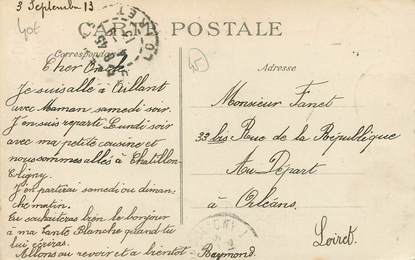 3 Septembre 13
CARTE POSTALE
Correspondance
Adresse
45
Cher Oncle
Je suis allé à Aillant
avec Maman samedi soir.
J'en suis reparti Lundi soir
avec ma petite cousine et
nous sommes allés à Chatillon
Coligny.
J'en partirai samedi ou diman-
che matin.
Tu souhaiteras bien le bonjour
à ma Tante Blanche quand tu
lui écriras.
Allons au revoir et a bientôt Raymond.
Monsieur Fanet
33 bis Rue de la République
Au Départ
à Orléans.
Loiret.